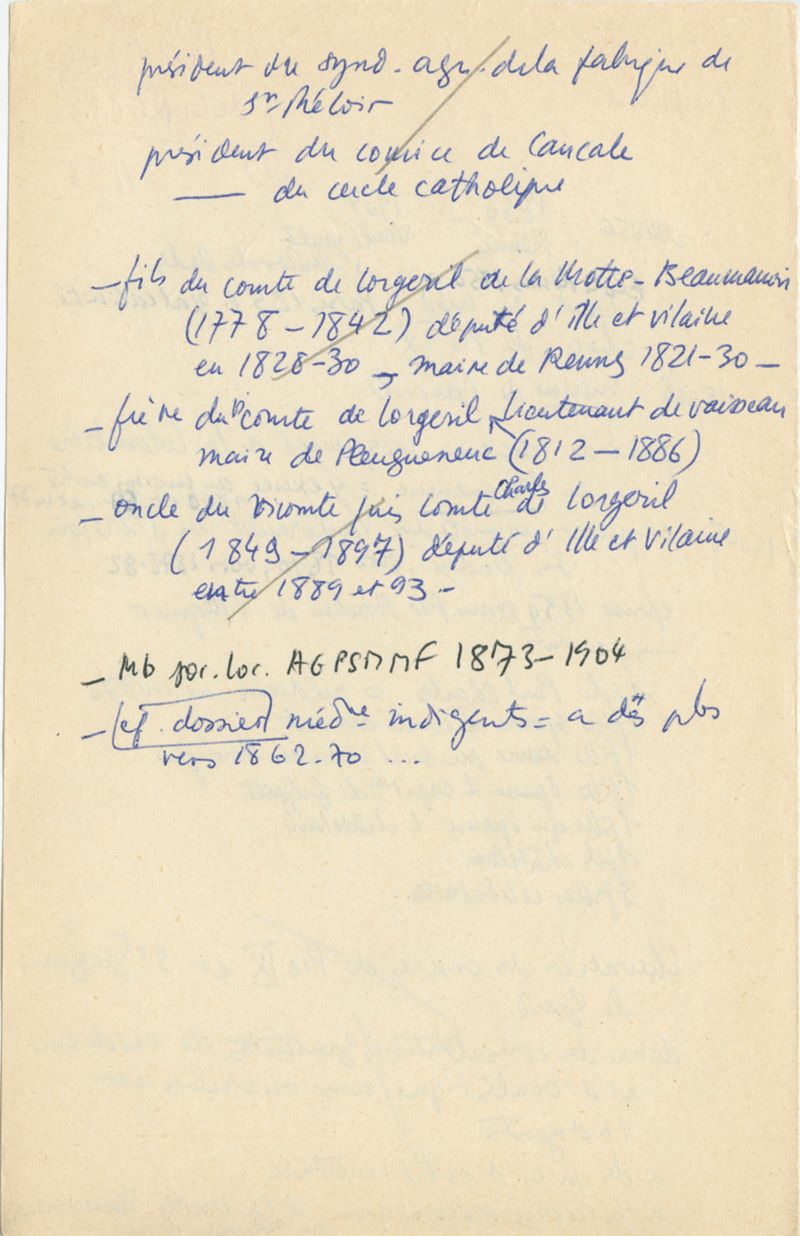 président du synd. agr. de la fabrique de
St Méloir
président du comice de Cancale
—— du cercle catholique
– fils du comte de Lorgeril de la Motte-Beaumanoir
(1778 – 1842) député d'Ille et Vilaine
en 1828-30 – maire de Rennes 1821-30 –
– frère du Vte comte de Lorgeril, lieutenant de vaisseau
maire de Pleugueneuc (1812 – 1886)
– oncle du vicomte puis comte Charles de Lorgeril
(1849 – 1897) député d'Ille et Vilaine
entre 1889 et 93 –
– Mb soc. loc. AGPSMMF 1873-1904
– cf. dossier médne indigents = a des pbs
vers 1862-70 ...